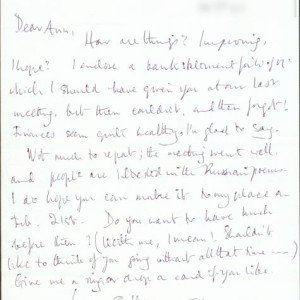 Dear Ann,
How are things? Improving,
I hope? I enclose a bank statement
which I should have given you at our last
meeting, but then couldn't, and then forgot!
Finances seem quite healthy, I'm glad to say.
Not much to report; the meeting went well
and people are in with the Russian poems.
I do hope you can make it to my place on
Feb. 21st. Do you want to have lunch
before then? (With me, I mean! Shouldn't
like to think of you going without all that time ---)
Give me a ring or drop a card if you like